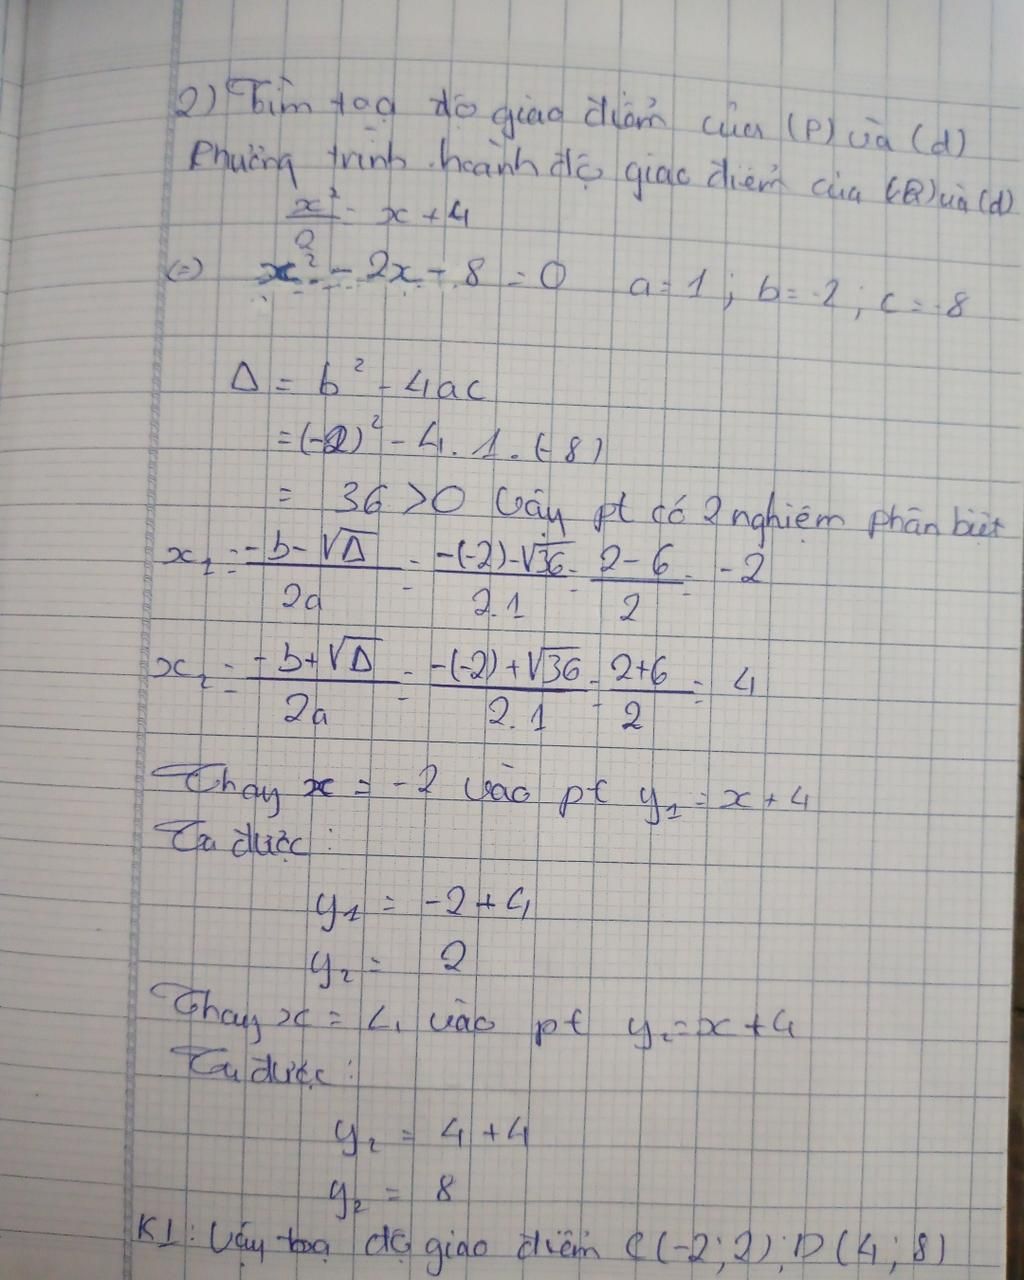 2) Tìm toạ độ giao điểm của (P) và (d)
Phương trình hoành độ giao điểm của (P) và (d)
x²/2 = x + 4
(=) x² - 2x - 8 = 0 a = 1 ; b = -2 ; c = -8
Δ = b² - 4ac
= (-2)² - 4 . 1 . (-8)
= 36 > 0 Vậy pt có 2 nghiệm phân biệt
x₁ = (-b - √Δ)/2a = (-(-2) - √36)/2.1 = (2 - 6)/2 = -2
x₂ = (-b + √Δ)/2a = (-(-2) + √36)/2.1 = (2 + 6)/2 = 4
Thay x = -2 vào pt y₁ = x + 4
Ta được :
y₁ = -2 + 4
y₂ = 2
Thay x = 4 vào pt y₂ = x + 4
Ta được :
y₂ = 4 + 4
y₂ = 8
KL : Vậy toạ độ giao điểm C (-2 ; 2) ; D (4 ; 8)